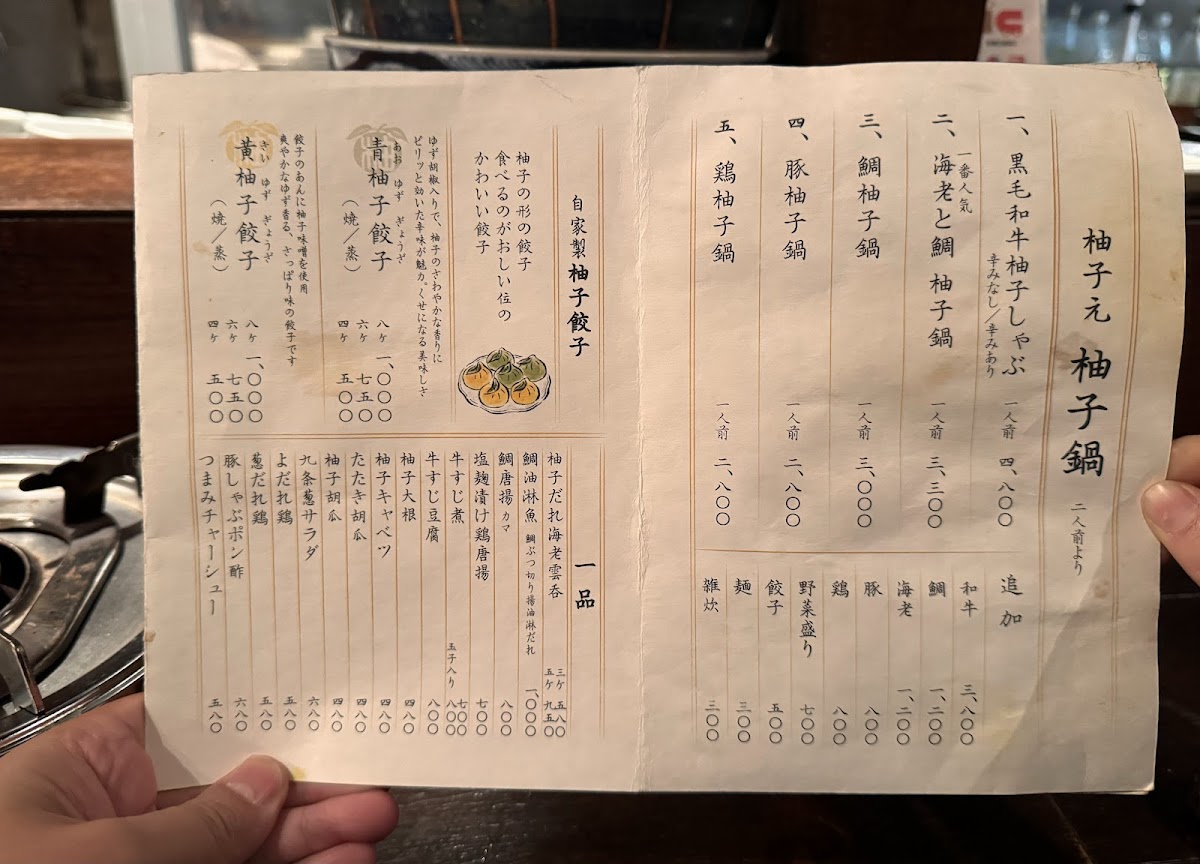 柚子元 柚子鍋 二人前より
一、黒毛和牛柚子しゃぶ 一人前 四、八〇〇
辛みなし/辛みあり
一番人気
二、海老と鯛 柚子鍋 一人前 三、三〇〇
三、鯛柚子鍋 一人前 三、〇〇〇
四、豚柚子鍋 一人前 二、八〇〇
五、鶏柚子鍋 一人前 二、八〇〇
追加
和牛 三、八〇〇
鯛 一、二〇〇
海老 一、二〇〇
豚 八〇〇
鶏 八〇〇
野菜盛り 七〇〇
餃子 五〇〇
麺 三〇〇
雑炊 三〇〇
自家製柚子餃子
柚子の形の餃子
食べるのがおしい位の
かわいい餃子
ゆず胡椒入りで、柚子のさわやかな香りに
ピリッと効いた辛味が魅力。くせになる美味しさ
あお ゆず ぎょうざ
青柚子餃子(焼/蒸)
八ヶ 一、〇〇〇
六ヶ 七五〇
四ヶ 五〇〇
餃子のあんに柚子味噌を使用
爽やかなゆず香る、さっぱり味の餃子です
きい ゆず ぎょうざ
黄柚子餃子(焼/蒸)
八ヶ 一、〇〇〇
六ヶ 七五〇
四ヶ 五〇〇
一品
柚子だれ海老雲呑 三ヶ 五八〇
五ヶ 九五〇
鯛油淋魚 鯛ぶつ切り揚油淋だれ 一、〇〇〇
鯛唐揚カマ 八〇〇
塩麹漬け鶏唐揚 七〇〇
牛すじ煮 七〇〇
玉子入り 八〇〇
牛すじ豆腐 八〇〇
柚子大根 四八〇
柚子キャベツ 四八〇
たたき胡瓜 四八〇
柚子胡瓜 四八〇
九条葱サラダ 六八〇
よだれ鶏 五八〇
葱だれ鶏 五八〇
豚しゃぶポン酢 六八〇
つまみチャーシュー 五八〇